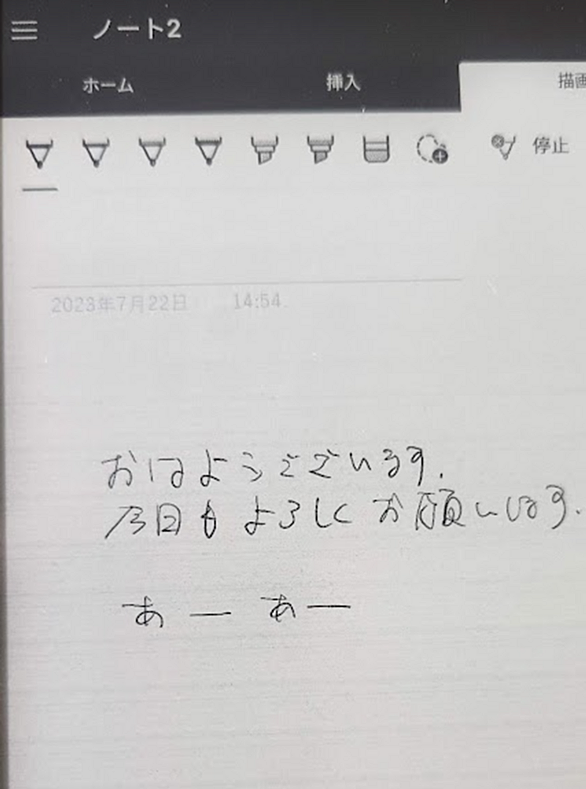 ノート2
ホーム 挿入 描画
停止
2023年7月22日 14:54
おはようございます.
今日もよろしくお願いします.
あー あー